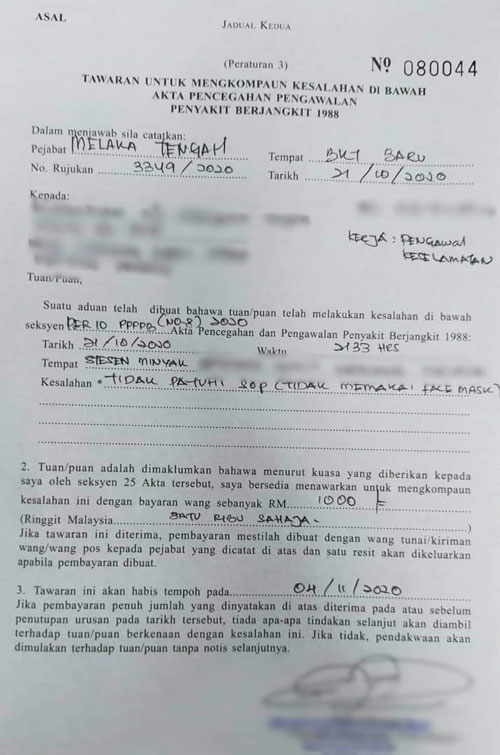 ASAL
JADUAL KEDUA
(Peraturan 3)
Nº 080044
TAWARAN UNTUK MENGKOMPAUN KESALAHAN DI BAWAH
AKTA PENCEGAHAN PENGAWALAN
PENYAKIT BERJANGKIT 1988
Dalam menjawab sila catatkan:
Pejabat MELAKA TENGAH
Tempat BKT BARU
No. Rujukan 3349/2020
Tarikh 21/10/2020
Kepada:
KERJA : PENGAWAL
KESELAMATAN
Tuan/Puan,
Suatu aduan telah dibuat bahawa tuan/puan telah melakukan kesalahan di bawah
seksyen PER 10 PPPPB (NO.8) 2020 Akta Pencegahan dan Pengawalan Penyakit Berjangkit 1988:
Tarikh 21/10/2020 Waktu 2133 HRS
Tempat STESEN MINYAK
Kesalahan * TIDAK PATUHI SOP (TIDAK MEMAKAI FACE MASK)
2. Tuan/puan adalah dimaklumkan bahawa menurut kuasa yang diberikan kepada
saya oleh seksyen 25 Akta tersebut, saya bersedia menawarkan untuk mengkompaun
kesalahan ini dengan bayaran wang sebanyak RM 1000/-
(Ringgit Malaysia SATU RIBU SAHAJA- )
Jika tawaran ini diterima, pembayaran mestilah dibuat dengan wang tunai/kiriman
wang/wang pos kepada pejabat yang dicatat di atas dan satu resit akan dikeluarkan
apabila pembayaran dibuat.
3. Tawaran ini akan habis tempoh pada 04/11/2020
Jika pembayaran penuh jumlah yang dinyatakan di atas diterima pada atau sebelum
penutupan urusan pada tarikh tersebut, tiada apa-apa tindakan selanjut akan diambil
terhadap tuan/puan berkenaan dengan kesalahan ini. Jika tidak, pendakwaan akan
dimulakan terhadap tuan/puan tanpa notis selanjutnya.